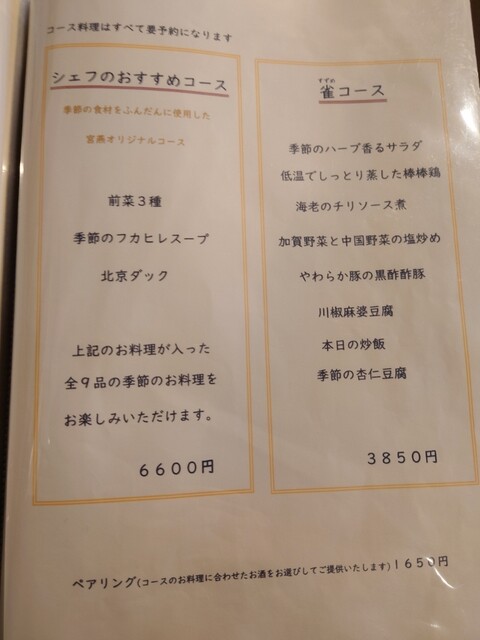 コース料理はすべて要予約になります
シェフのおすすめコース
季節の食材をふんだんに使用した
宮燕オリジナルコース
前菜3種
季節のフカヒレスープ
北京ダック
上記のお料理が入った
全9品の季節のお料理を
お楽しみいただけます。
6600円
すずめ
雀コース
季節のハーブ香るサラダ
低温でしっとり蒸した棒棒鶏
海老のチリソース煮
加賀野菜と中国野菜の塩炒め
やわらか豚の黒酢酢豚
川椒麻婆豆腐
本日の炒飯
季節の杏仁豆腐
3850円
ペアリング(コースのお料理に合わせたお酒をお選びしてご提供いたします)1650円